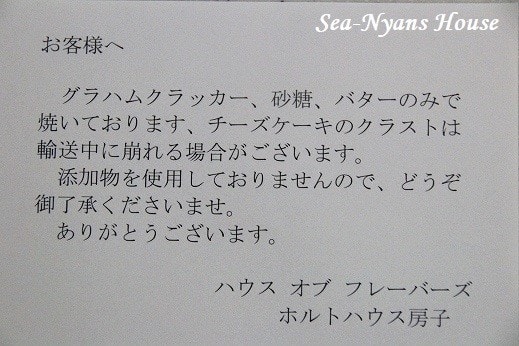 Sea-Nyans House
お客様へ
グラハムクラッカー、砂糖、バターのみで
焼いております、チーズケーキのクラストは
輸送中に崩れる場合がございます。
添加物を使用しておりませんので、どうぞ
御了承くださいませ。
ありがとうございます。
ハウス オブ フレーバーズ
ホルトハウス房子